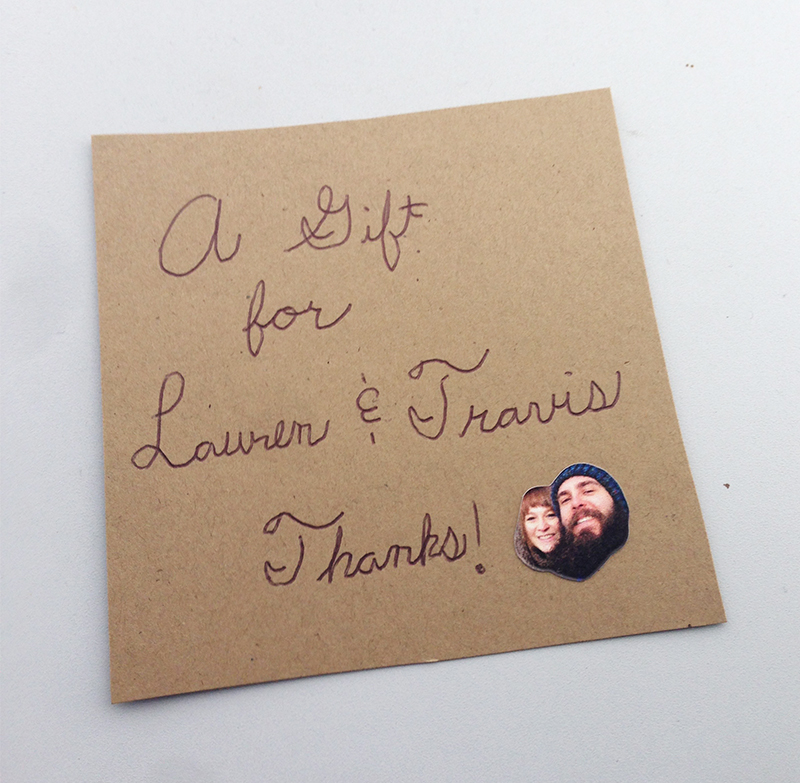 A Gift
for
Lauren & Travis
Thanks!